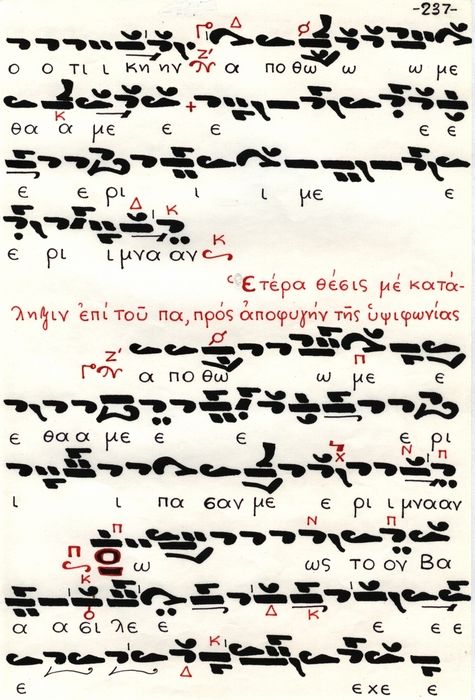 -237-
ο ο τι ι κη ην α πο θω ω ω με
θα α με ε ε ε ε
ε ε ρι ι ι με ε
ε ρι ι μνα αν
Ετέρα θέσις μέ κατά-
ληψιν ἐπί τοῦ πα, πρός ἀποφυγήν τῆς ὑψιφωνίας
α πο θω ω με ε
ε θα α με ε ε ε ρι
ι ι πα σαν με ε ρι ι μνα αν
Ο ω ως το ον Βα
α α σι λε ε ε ε ε
ε ε χε ε